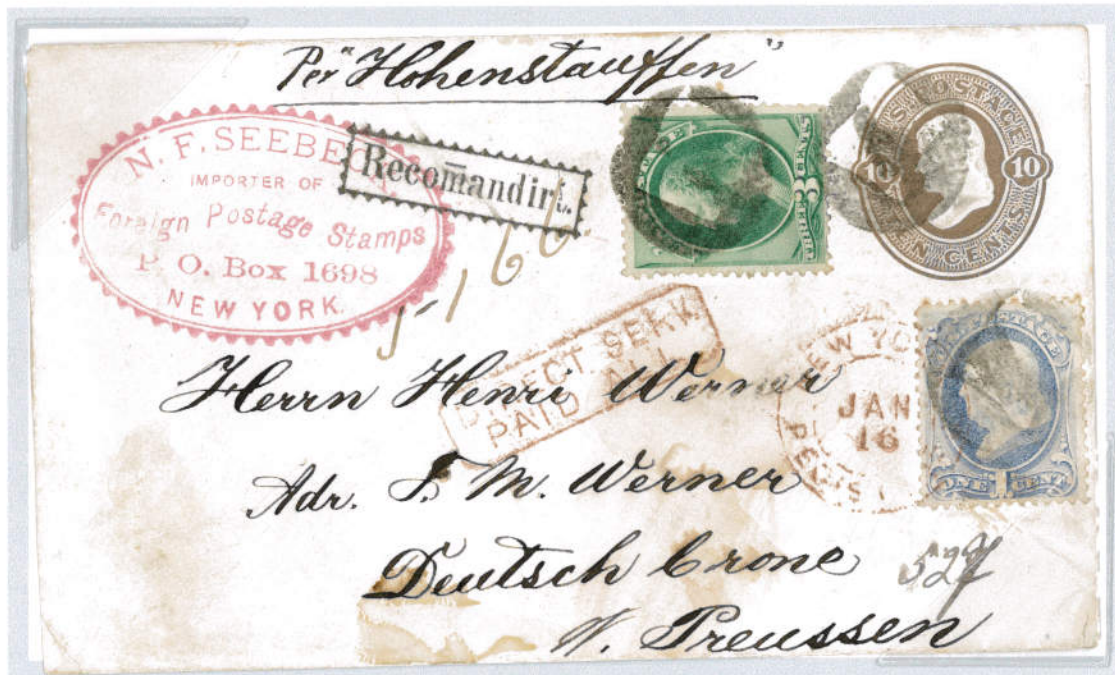 Per "Hohenstauffen"
N. F. SEEBECK.
IMPORTER OF
Foreign Postage Stamps
P. O. Box 1698
NEW YORK.
Recom̄andirt.
U.S. POSTAGE
10 10
TEN CENTS
3
CENTS
DIRECT. SERV.
PAID ALL
NEW YO
JAN
16
REGIS
ONE 1 CENT
Herrn Henri Werner
Adr. F. M. Werner
Deutsch Crone
W. Preussen